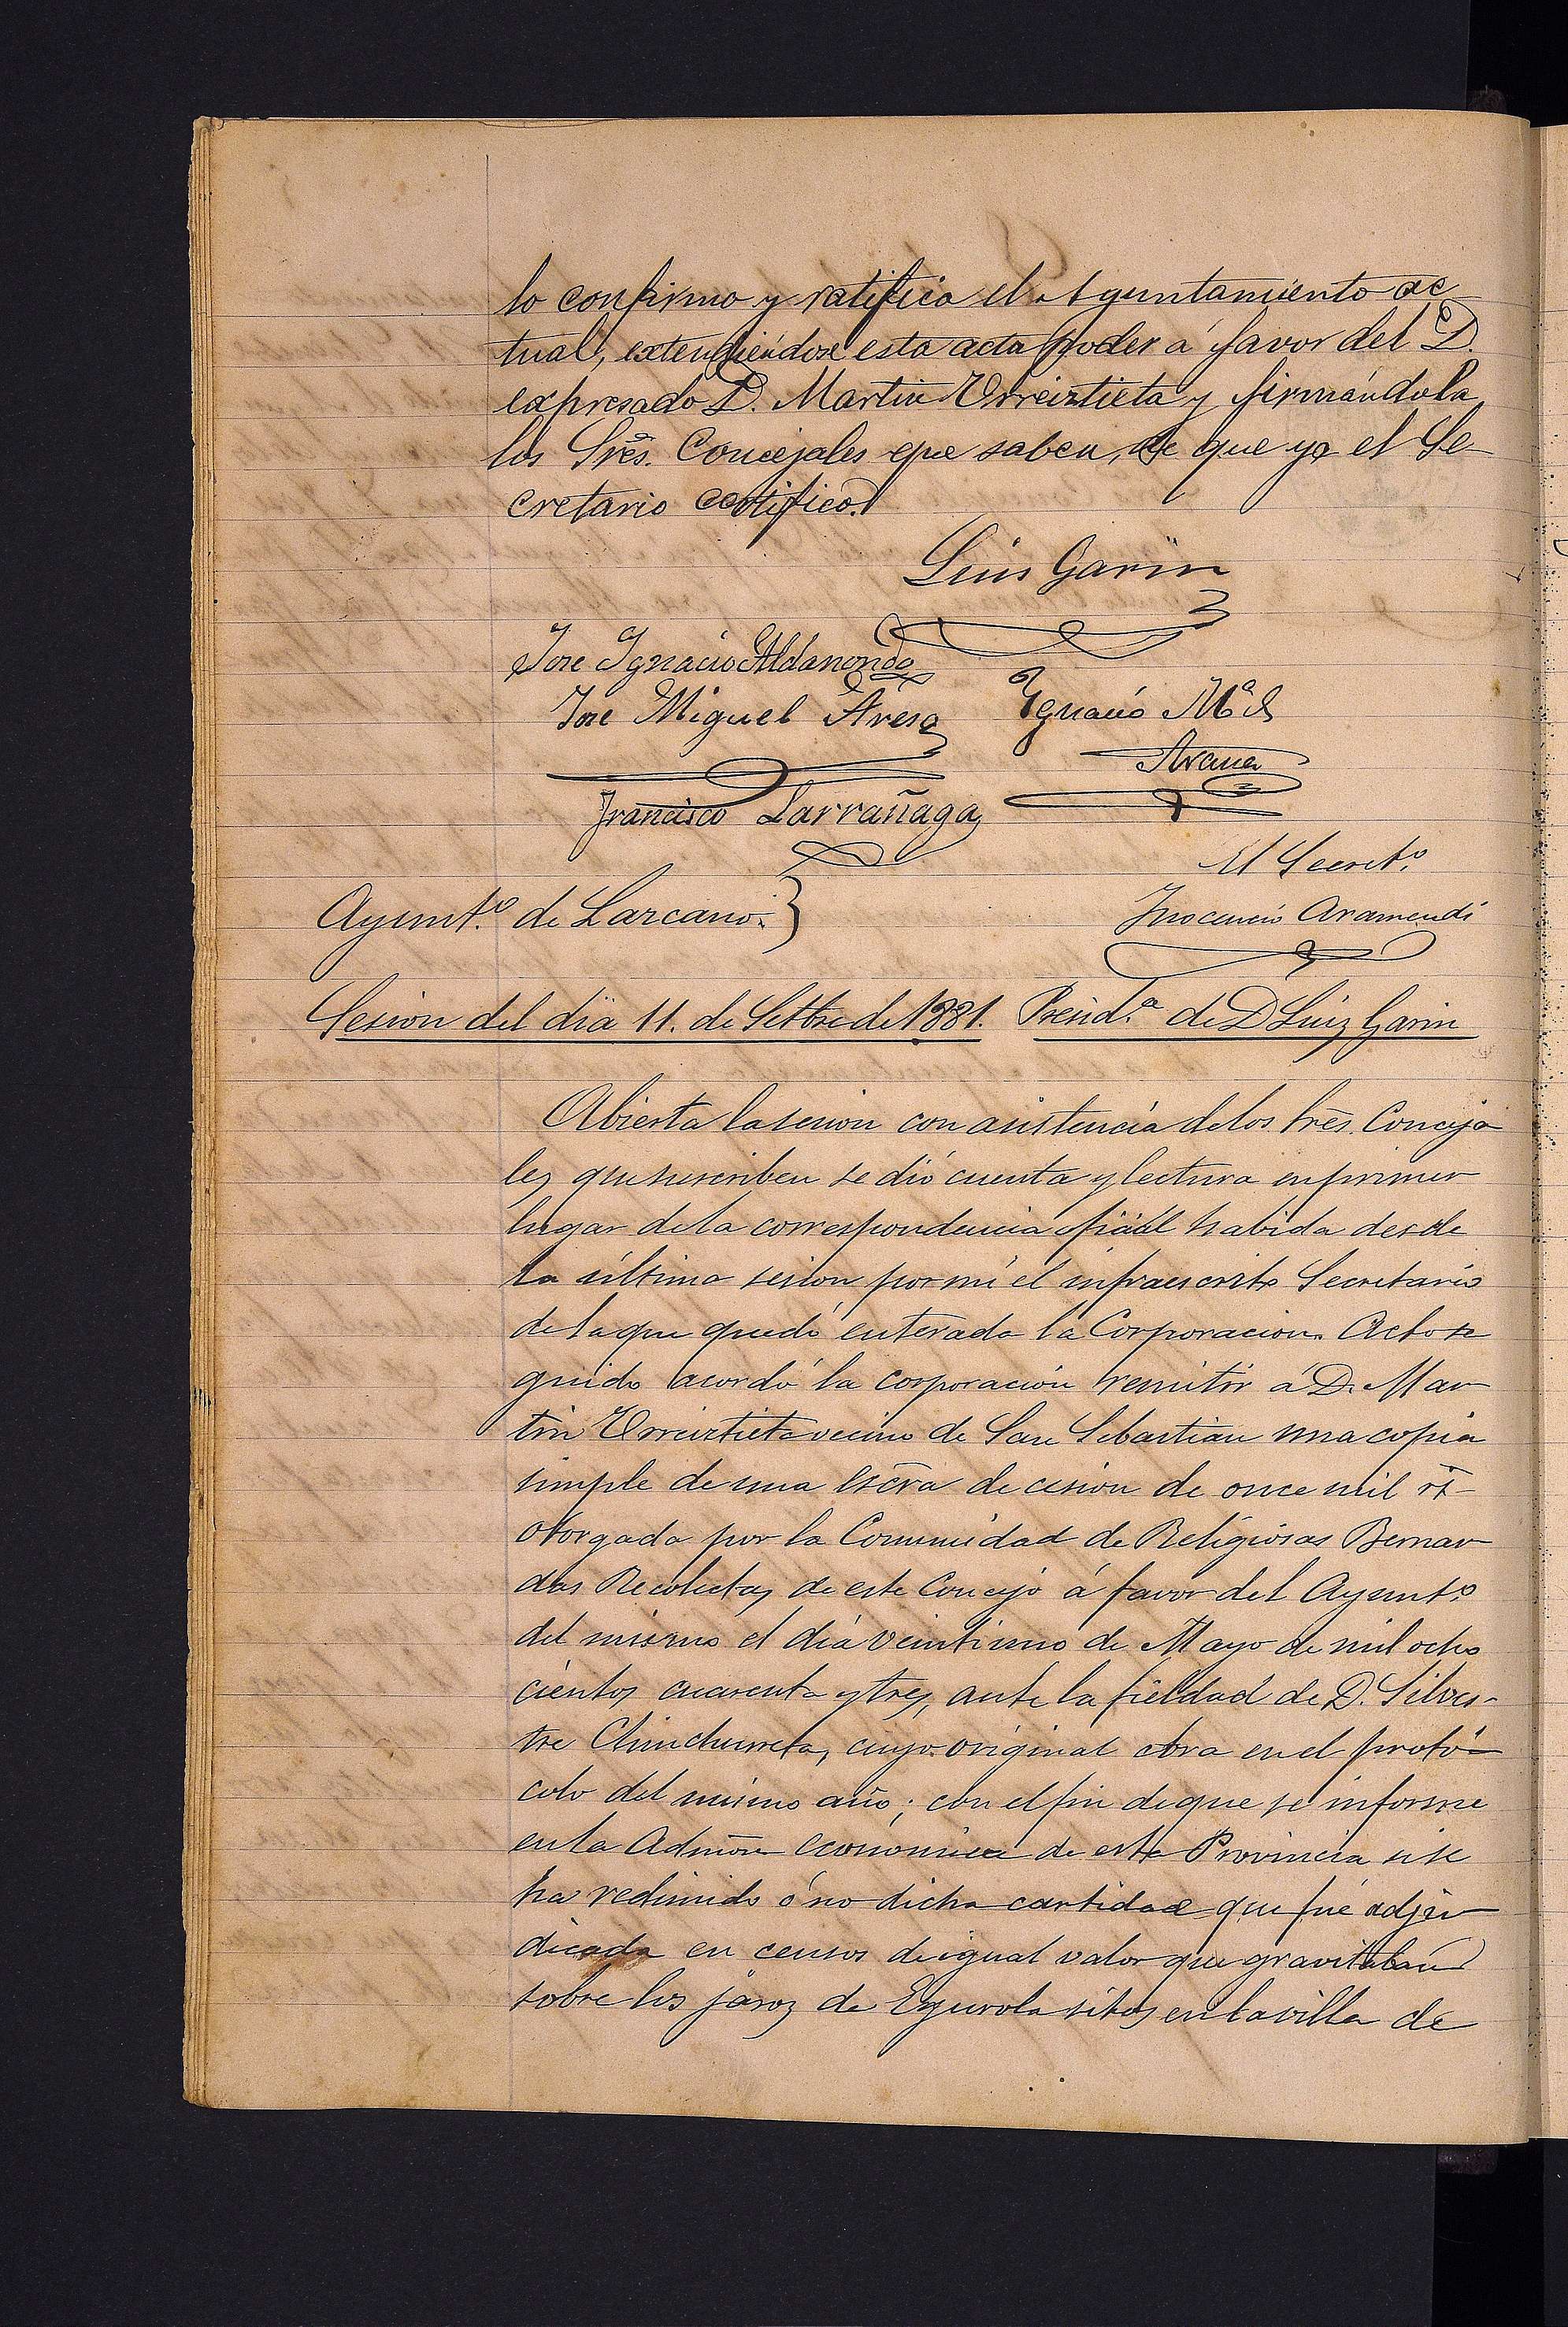 lo confirmo y ratifica el Ayuntamiento ac
tual, extendiéndose esta acta poder á favor del D.
expresado D. Martin Urreiztieta y firmándola
los Sres. Concejales que saben, de que yo el Se-
cretario certifico.
Luis Garin
Jose Ignacio Aldanondo
Jose Miguel Aresa
Ignacio Mª de
Arana
Francisco Larrañaga
El Secretº
Inocencio Aramendi
Ayuntº de Lazcano.
Sesion del dia 11. de Setbre de 1881. Presidª de D Luiz Garin
Abierta la sesion con asistencia de los Sres. Conceja
les que suscriben se dió cuenta y lectura en primer
lugar de la correspondencia oficial habida desde
la última sesion por mi el infraescrito Secretario
de la que quedó enterada la Corporacion. Acto se
guido acordó la corporación remitir á D. Mar
tin Urreiztieta vecino de San Sebastian una copia
simple de una escra de cesion de once mil rs
otorgada por la Comunidad de Religiosas Bernar
das Recoletas de este Concejo á favor del Ayuntº
del mismo el dia veintiuno de Mayo de mil ocho
cientos cuarenta y tres, ante la fieldad de D. Silves-
tre Chinchurreta, cuyo original obra en el protó-
colo del mismo año; con el fin de que se informe
en la Admon económica de esta Provincia si se
ha redimido ó no dicha cantidad que fué adju
dicada en censos de igual valor que gravitaban
sobre los jaroz de Egurola sitos en la villa de